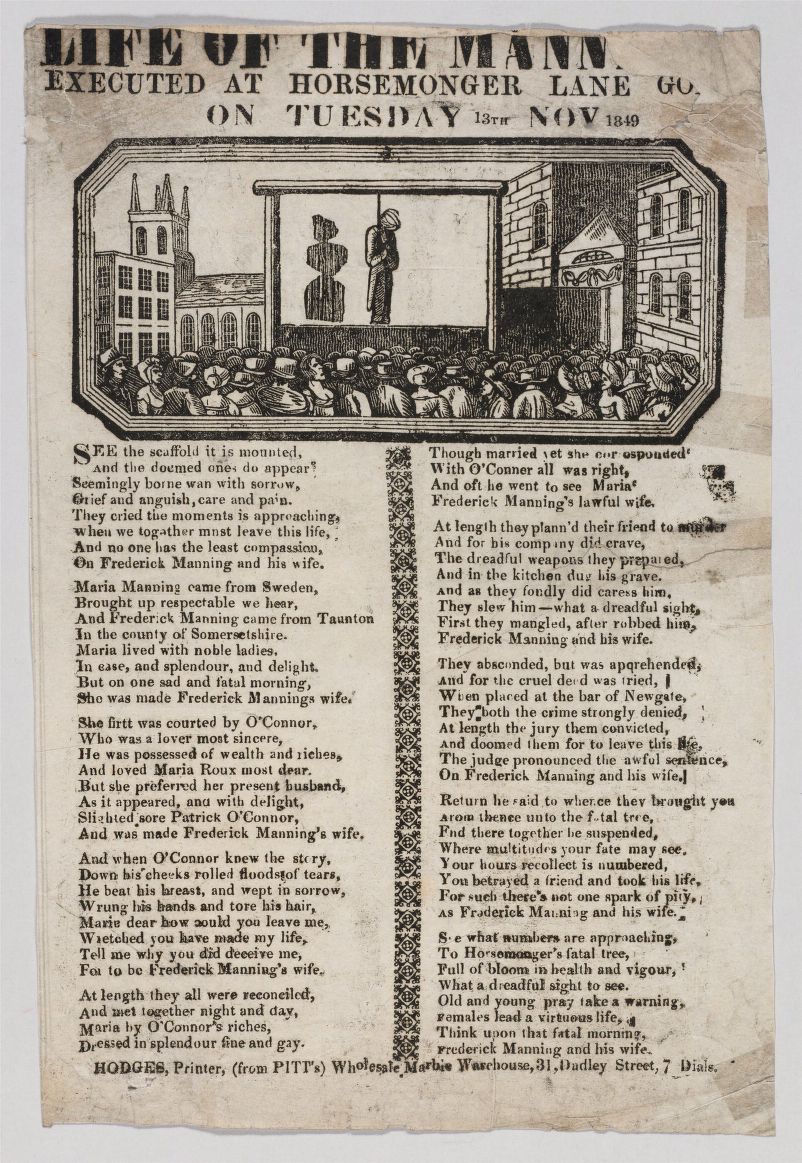 LIFE OF THE MANN
EXECUTED AT HORSEMONGER LANE GO
ON TUESDAY 13TH NOV 1849
SEE the scaffold it is mounted,
And the doomed ones do appear
Seemingly borne wan with sorrow,
Grief and anguish, care and pain.
They cried the moments is approaching,
When we together must leave this life,
And no one has the least compassion,
On Frederick Manning and his wife.
Maria Manning came from Sweden,
Brought up respectable we hear,
And Frederick Manning came from Taunton
In the county of Somersetshire.
Maria lived with noble ladies,
In ease, and splendour, and delight.
But on one sad and fatal morning,
She was made Frederick Mannings wife.
She firtt was courted by O'Connor,
Who was a lover most sincere,
He was possessed of wealth and riches,
And loved Maria Roux most dear.
But she preferred her present husband,
As it appeared, and with delight,
Slighted sore Patrick O'Connor,
And was made Frederick Manning's wife.
And when O'Connor knew the story,
Down his cheeks rolled floods of tears,
He beat his breast, and wept in sorrow,
Wrung his hands and tore his hair,
Maria dear how could you leave me,
Wretched you have made my life,
Tell me why you did deceive me,
For to be Frederick Manning's wife.
At length they all were reconciled,
And met together night and day,
Maria by O'Connor's riches,
Dressed in splendour fine and gay.
Though married yet she corresponded
With O'Conner all was right,
And oft he went to see Maria
Frederick Manning's lawful wife.
At length they plann'd their friend to murder
And for his company did crave,
The dreadful weapons they prepared,
And in the kitchen dug his grave.
And as they fondly did caress him,
They slew him—what a dreadful sight,
First they mangled, after robbed him,
Frederick Manning and his wife.
They absconded, but was apqrehended,
And for the cruel deed was tried,
When placed at the bar of Newgate,
They both the crime strongly denied,
At length the jury them convicted,
And doomed them for to leave this life,
The judge pronounced the awful sentence,
On Frederick Manning and his wife.
Return he said to whence they brought you
From thence unto the fatal tree,
End there together be suspended,
Where multitudes your fate may see.
Your hours recollect is numbered,
You betrayed a friend and took his life,
For such there's not one spark of pity,
As Frederick Manning and his wife.
See what numbers are approaching,
To Horsemonger's fatal tree,
Full of bloom in health and vigour,
What a dreadful sight to see.
Old and young pray take a warning,
Females lead a virtuous life,
Think upon that fatal morning,
Frederick Manning and his wife.
HODGES, Printer, (from PITT's) Wholesale Marble Warehouse, 31, Dudley Street, 7 Dials.